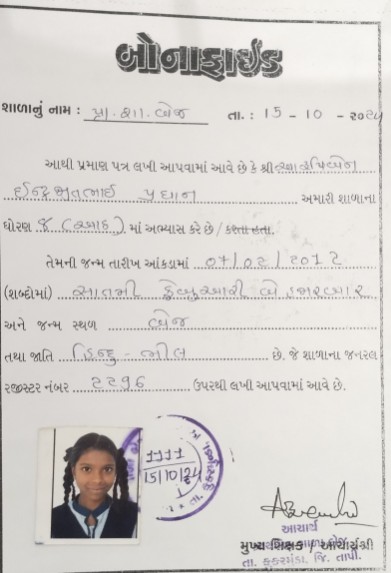 બોનાફાઈડ
શાળાનું નામ : પ્રા. શા. બેજ તા. : 15 - 10 - ૨૦૨૪
આથી પ્રમાણ પત્ર લખી આપવામાં આવે છે કે શ્રી
પ્રધાન અમારી શાળાના
ધોરણ ૮ (આઠ) માં અભ્યાસ કરે છે / કરતા હતા.
તેમની જન્મ તારીખ આંકડામાં 07/02/2012
(શબ્દોમાં) સાતમી ફેબ્રુઆરી બે હજાર બાર
અને જન્મ સ્થળ બેજ
તથા જાતિ હિન્દુ - ભીલ છે. જે શાળાના જનરલ
રજીસ્ટર નંબર ૨૨૧૬ ઉપરથી લખી આપવામાં આવે છે.
1111
15/10/24
આચાર્ય
મુખ્ય શિક્ષક / આચાર્યશ્રી
તા. કુકરમુંડા, જિ. તાપી.